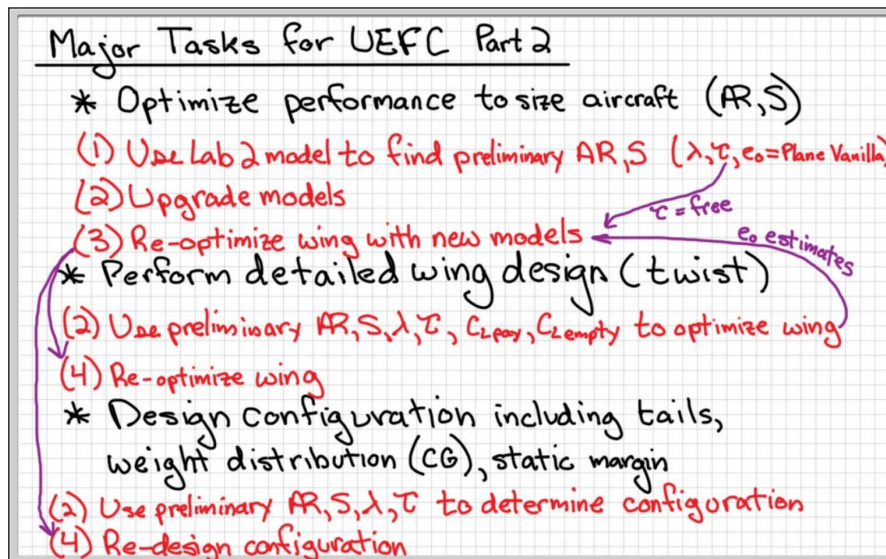 Major Tasks for UEFC Part 2
* Optimize performance to size aircraft (AR,S)
(1) Use Lab 2 model to find preliminary AR,S (λ,τ,e₀=Plane Vanilla)
(2) Upgrade models
τ = free
(3) Re-optimize wing with new models
e₀ estimates
* Perform detailed wing design (twist)
(2) Use preliminary AR,S,λ,τ, CLpay, CLempty to optimize wing
(4) Re-optimize wing
* Design configuration including tails,
weight distribution (CG), static margin
(2) Use preliminary AR,S,λ,τ to determine configuration
(4) Re-design configuration